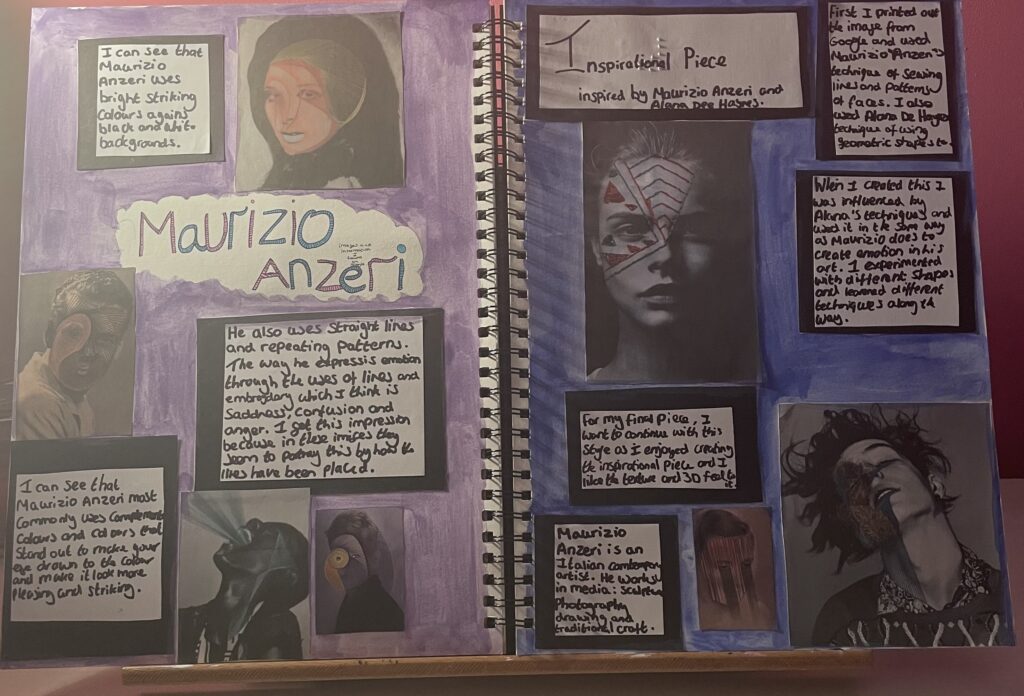 I can see that
Maurizio
Anzeri uses
bright striking
Colours agains
black and white
backgrounds.
Maurizio
Anzeri
He also uses straight lines
and repeating patterns.
The way he expressis emotion
through the uses of lines and
embrodary which I think is
Saddness, confusion and
anger. I get this impression
because in these
to portray this by how the
lines have been placed.
I can see that
Maurizio Anzeri most
Commonly uses
Colours and Colours that
Stand out to make your
eye drawn to the colour
and make it look more
pleasing and striking.
Inspirational Piece
inspired by Maurizio Anzeri and
Alana Dee Haynes.
First I printed out
the image from
Google and used
Maurizio Anzeri's
technique of Sewing
lines and patterns
of faces. I also
used Alana De
technique of using
geometric shapes to.
When I created this I
was influenced by
Alana's technique and
used it in the same way
as Maurizio does to
create emotion in his
art. I experimented
with different shapes
and learned different
techniques along the
way.
For my final Piece, I
want to continue with this
Style as I enjoyed creating
the inspirational Piece and I
like the texture and 3D feel to
it.
Maurizio
Anzeri is an
Italian
artist. He works
in media: sculpture
Photography
drawing and
traditional craft.